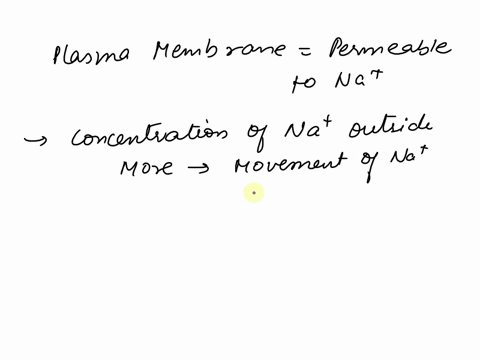 Plasma Membrane = Permeable
to Na⁺
→ Concentration of Na⁺ outside
More → Movement of Na⁺